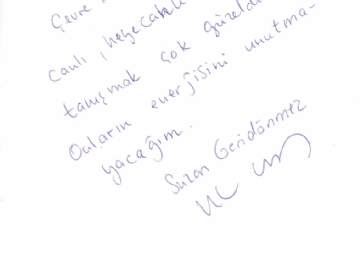 Çevre
canlı, heyecanlı
tanışmak çok güzeldi
Onların enerjisini unutma-
yacağım.
Suzan Geridönmez